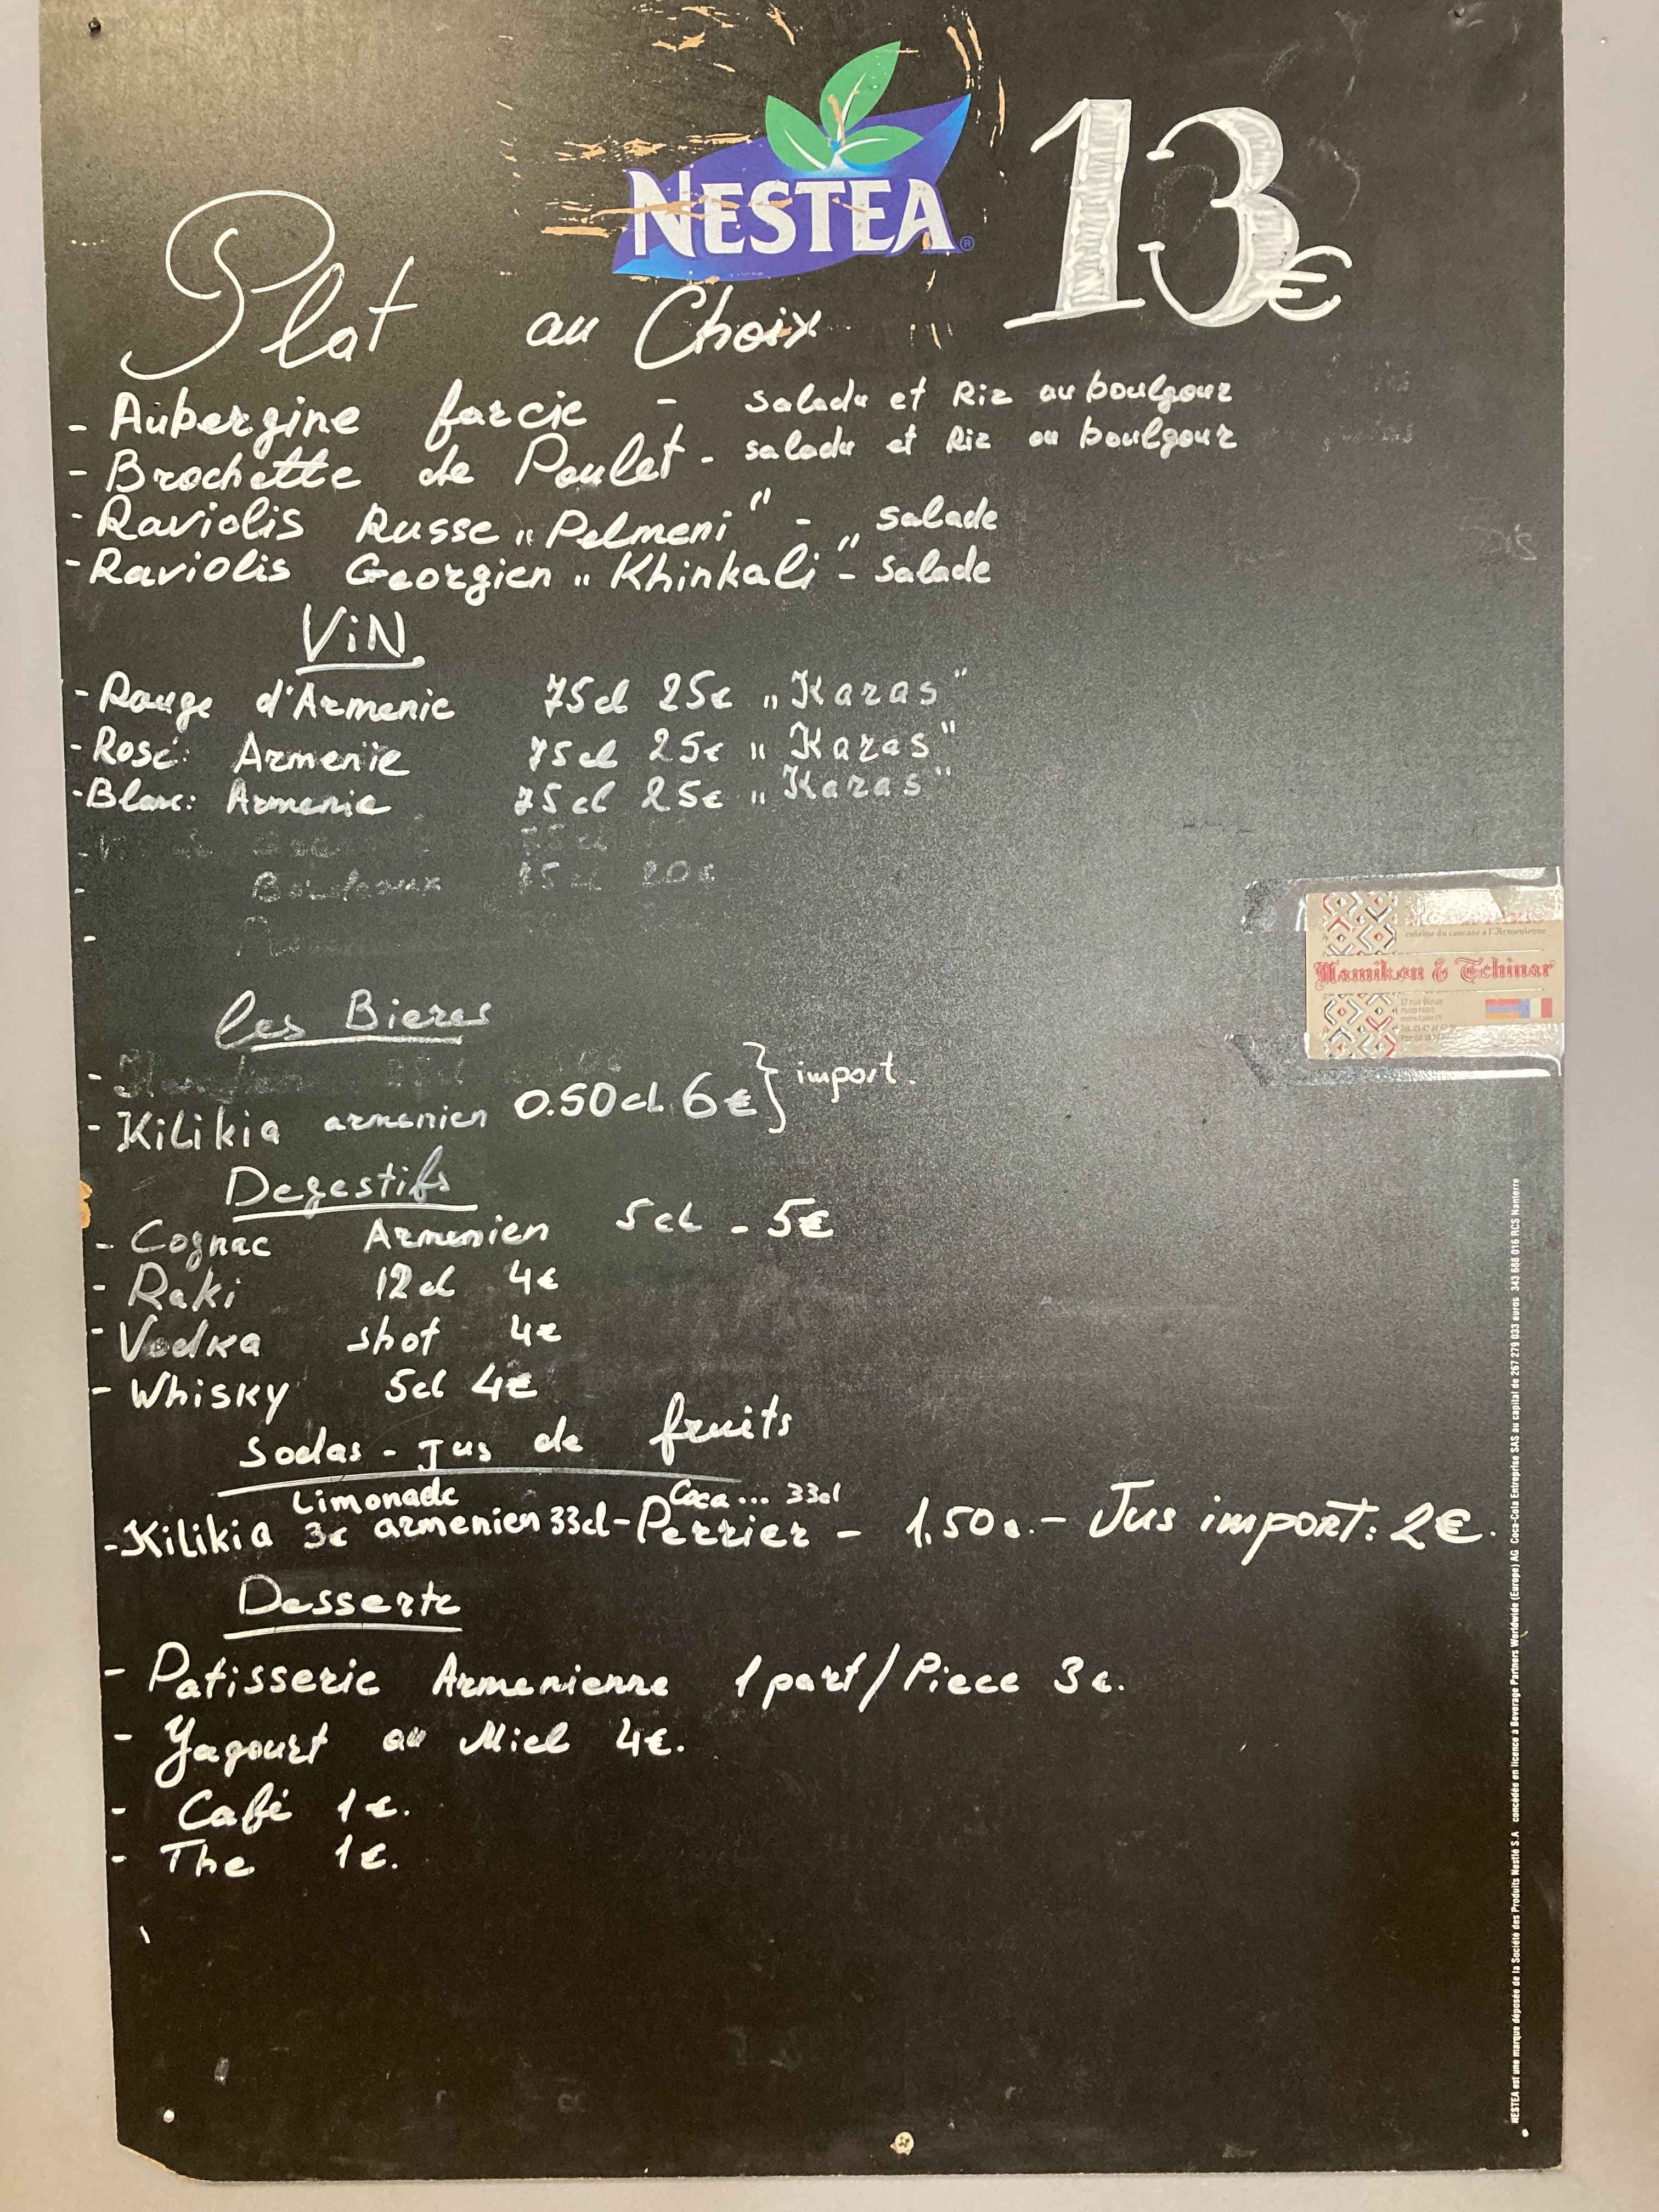 NESTEA®
13€
Plat au Choix
- Aubergine farcie - salade et Riz ou boulgour
- Brochette de Poulet - salade et Riz ou boulgour
- Raviolis Russe „Pelmeni" - salade
- Raviolis Georgien „Khinkali" - salade
ViN
- Rouge d'Armenie 75cl 25€ „Karas"
- Rosé: Armenie 75cl 25€ „Karas"
- Blanc: Armenie 75cl 25€ „Karas"
75cl
- Bordeaux 75cl 20€
-
les Bieres
-
- Kilikia armenien 0.50cl 6€ } import.
Degestifs
- Cognac Armenien 5cl - 5€
- Raki 12cl 4€
- Vodka shot 4€
- Whisky 5cl 4€
Sodas - Jus de fruits
Limonade Coca... 33cl
- Kilikia 3€ armenien 33cl - Perrier - 1,50€. - Jus import: 2€.
Desserte
- Patisserie Armenienne 1 part/Piece 3€.
- Yagourt au Miel 4€.
- Café 1€.
- The 1€.
cuisine du caucase a l'Armenienne
Mamikon & Tchinar
17 rue Bleue
75009 PARIS
NESTEA est une marque déposée de la Société des Produits Nestlé S.A concédée en licence à Beverage Partners Worldwide (Europe) AG Coca-Cola Entreprise SAS au capital de 267 279 033 euros 343 688 016 RCS Nanterre